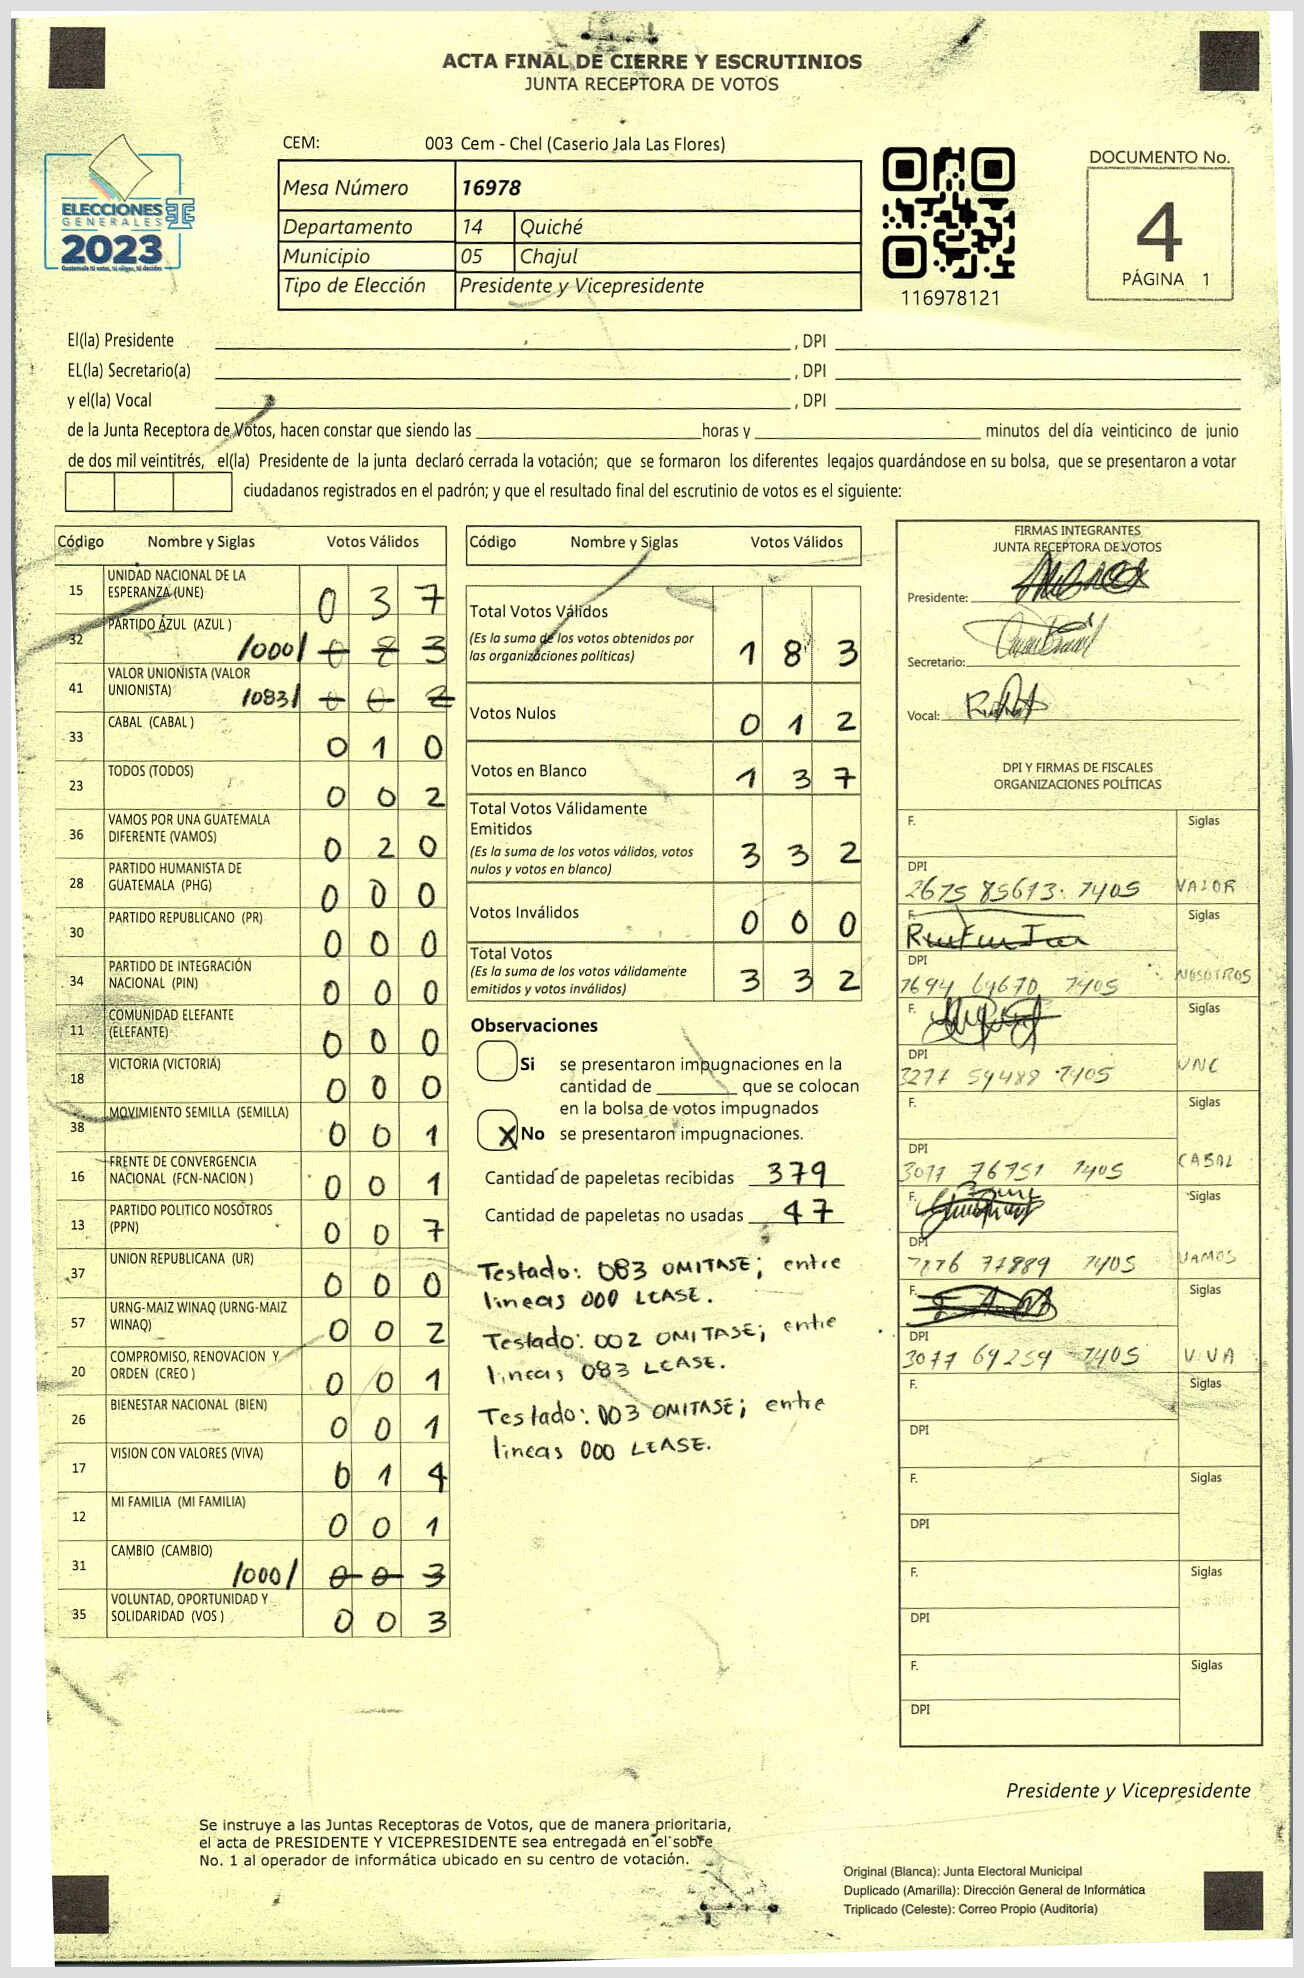 ACTA FINAL DE CIERRE Y ESCRUTINIOS
JUNTA RECEPTORA DE VOTOS
CEM: 003 Cem - Chel (Caserio Jala Las Flores)
ELECCIONES
GENERALES
2023
Guatemala tú votas, tú eliges, tú decides
Mesa Número 16978
Departamento 14 Quiché
Municipio 05 Chajul
Tipo de Elección Presidente y Vicepresidente
116978121
DOCUMENTO No.
4
PÁGINA 1
El(la) Presidente , DPI
EL(la) Secretario(a) , DPI
y el(la) Vocal , DPI
de la Junta Receptora de Votos, hacen constar que siendo las horas y minutos del día veinticinco de junio
de dos mil veintitrés, el(la) Presidente de la junta declaró cerrada la votación; que se formaron los diferentes legajos guardándose en su bolsa, que se presentaron a votar
ciudadanos registrados en el padrón; y que el resultado final del escrutinio de votos es el siguiente:
Código Nombre y Siglas Votos Válidos
15 UNIDAD NACIONAL DE LA ESPERANZA (UNE) 0 3 7
32 PARTIDO AZUL (AZUL ) /000/ 0 8 3
41 VALOR UNIONISTA (VALOR UNIONISTA) /083/ 0 0 2
33 CABAL (CABAL ) 0 1 0
23 TODOS (TODOS) 0 0 2
36 VAMOS POR UNA GUATEMALA DIFERENTE (VAMOS) 0 2 0
28 PARTIDO HUMANISTA DE GUATEMALA (PHG) 0 0 0
30 PARTIDO REPUBLICANO (PR) 0 0 0
34 PARTIDO DE INTEGRACIÓN NACIONAL (PIN) 0 0 0
11 COMUNIDAD ELEFANTE (ELEFANTE) 0 0 0
18 VICTORIA (VICTORIA) 0 0 0
38 MOVIMIENTO SEMILLA (SEMILLA) 0 0 1
16 FRENTE DE CONVERGENCIA NACIONAL (FCN-NACION ) 0 0 1
13 PARTIDO POLITICO NOSOTROS (PPN) 0 0 7
37 UNION REPUBLICANA (UR) 0 0 0
57 URNG-MAIZ WINAQ (URNG-MAIZ WINAQ) 0 0 2
20 COMPROMISO, RENOVACION Y ORDEN (CREO ) 0 0 1
26 BIENESTAR NACIONAL (BIEN) 0 0 1
17 VISION CON VALORES (VIVA) 0 1 4
12 MI FAMILIA (MI FAMILIA) 0 0 1
31 CAMBIO (CAMBIO) /000/ 0 0 3
35 VOLUNTAD, OPORTUNIDAD Y SOLIDARIDAD (VOS ) 0 0 3
Código Nombre y Siglas Votos Válidos
Total Votos Válidos
(Es la suma de los votos obtenidos por
las organizaciones políticas) 1 8 3
Votos Nulos 0 1 2
Votos en Blanco 1 3 7
Total Votos Válidamente
Emitidos
(Es la suma de los votos válidos, votos
nulos y votos en blanco) 3 3 2
Votos Inválidos 0 0 0
Total Votos
(Es la suma de los votos válidamente
emitidos y votos inválidos) 3 3 2
Observaciones
Si se presentaron impugnaciones en la
cantidad de que se colocan
en la bolsa de votos impugnados
X No se presentaron impugnaciones.
Cantidad de papeletas recibidas 379
Cantidad de papeletas no usadas 47
Testado: 083 OMITASE; entre
lineas 000 LEASE.
Testado: 002 OMITASE; entre
lineas 083 LEASE.
Testado: 003 OMITASE; entre
lineas 000 LEASE.
FIRMAS INTEGRANTES
JUNTA RECEPTORA DE VOTOS
Presidente:
Secretario:
Vocal:
DPI Y FIRMAS DE FISCALES
ORGANIZACIONES POLÍTICAS
F. Siglas
DPI
2675 85673 1405 VALOR
F. Siglas
DPI
64670 1405 NOSOTROS
F. Siglas
DPI
3277 59488 1405 UNE
F. Siglas
DPI
3077 76751 1405 CABAL
F. Siglas
DPI
77889 1405 VAMOS
F. Siglas
DPI
3077 69259 1405 VIVA
F. Siglas
DPI
F. Siglas
DPI
F. Siglas
DPI
F. Siglas
DPI
Presidente y Vicepresidente
Se instruye a las Juntas Receptoras de Votos, que de manera prioritaria,
el acta de PRESIDENTE Y VICEPRESIDENTE sea entregada en el sobre
No. 1 al operador de informática ubicado en su centro de votación.
Original (Blanca): Junta Electoral Municipal
Duplicado (Amarilla): Dirección General de Informática
Triplicado (Celeste): Correo Propio (Auditoría)